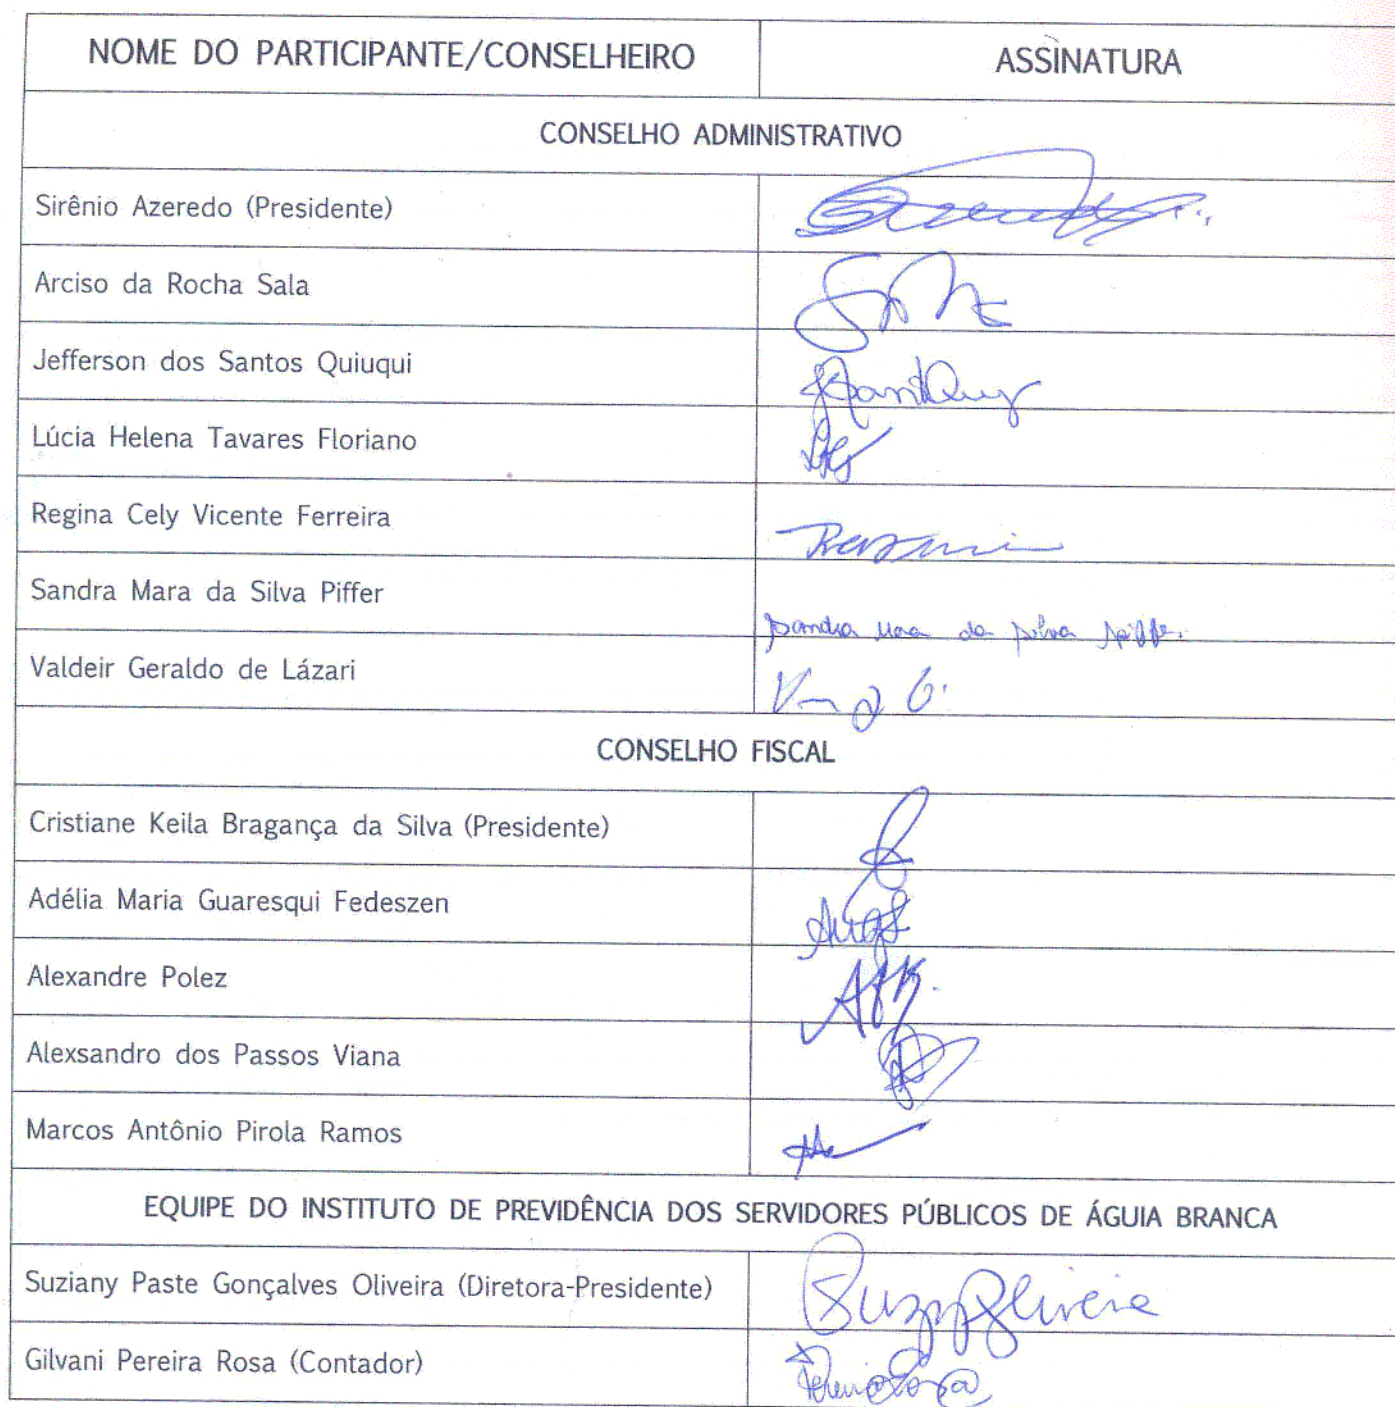 NOME DO PARTICIPANTE/CONSELHEIRO ASSINATURA
CONSELHO ADMINISTRATIVO
Sirênio Azeredo (Presidente)
Arciso da Rocha Sala
Jefferson dos Santos Quiuqui
Lúcia Helena Tavares Floriano
Regina Cely Vicente Ferreira
Sandra Mara da Silva Piffer Sandra Mara da Silva Piffer
Valdeir Geraldo de Lázari
CONSELHO FISCAL
Cristiane Keila Bragança da Silva (Presidente)
Adélia Maria Guaresqui Fedeszen
Alexandre Polez
Alexsandro dos Passos Viana
Marcos Antônio Pirola Ramos
EQUIPE DO INSTITUTO DE PREVIDÊNCIA DOS SERVIDORES PÚBLICOS DE ÁGUIA BRANCA
Suziany Paste Gonçalves Oliveira (Diretora-Presidente)
Gilvani Pereira Rosa (Contador)